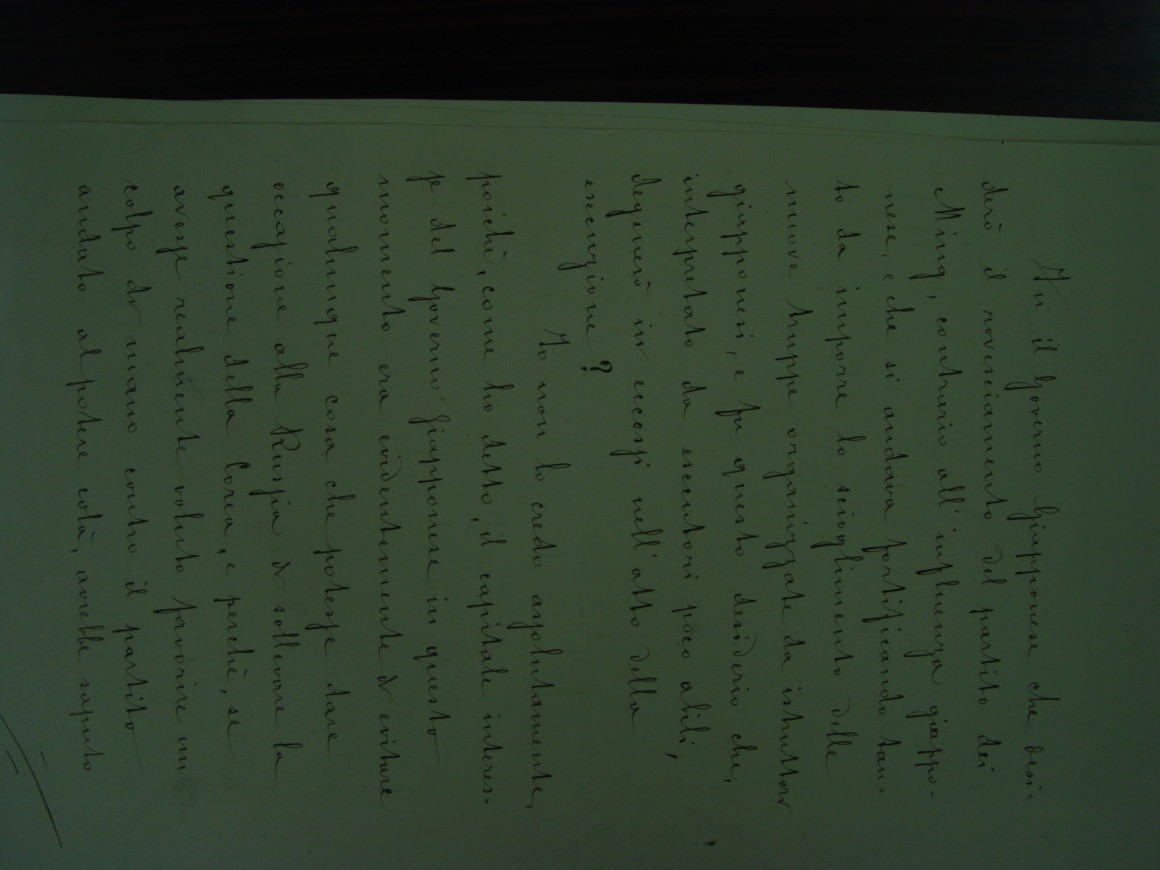 Fu il Governo Giapponese che desi-
derò il rovesciamento del partito dei
Ming, contrario all'influenza giappo-
nese, e che si andava fortificando tan-
to da imporre lo scioglimento delle
nuove truppe organizzate da istruttori
giapponesi, e fu questo desiderio che,
interpretato da esecutori poco abili,
degenerò in eccessi nell'atto della
esecuzione?
Io non lo credo assolutamente,
poichè, come ho detto, il capitale interes-
se del Governo Giapponese in questo
momento era evidentemente di evitare
qualunque cosa che potesse dare
occasione alla Russia di sollevare la
questione della Corea, e perchè, se
avesse realmente voluto favorire un
colpo di mano contro il partito
andato al potere colà, avrebbe saputo